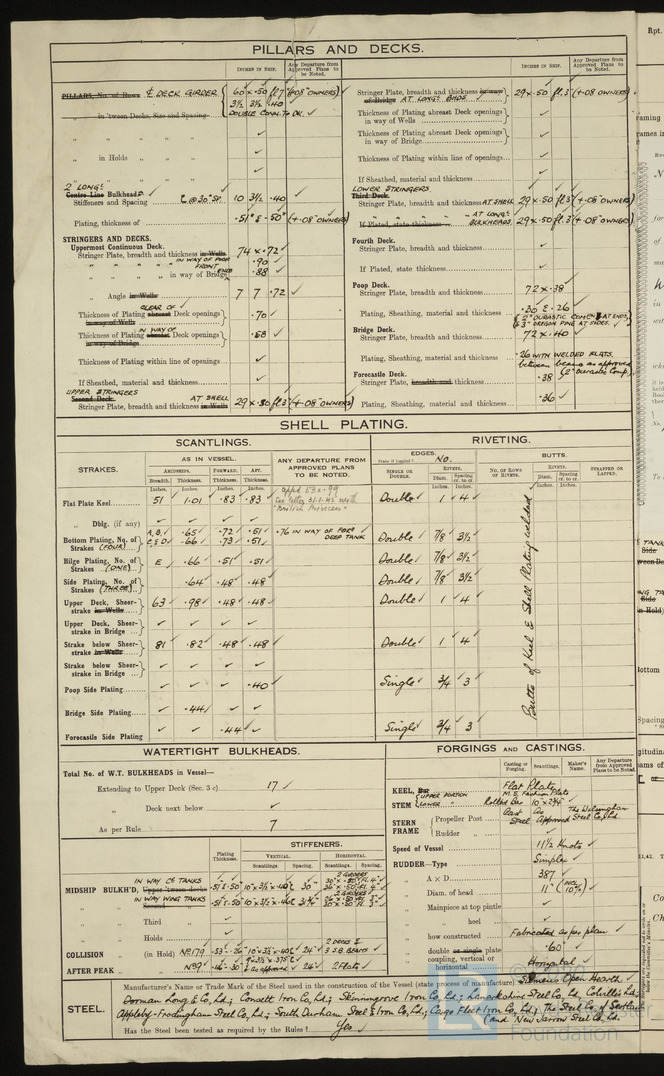 PILLARS AND DECKS.
INCHES IN SHIP.
Any Departure from Approved Plans to be Noted.
PILLARS, No. of Rows ₵ DECK GIRDER
60 x .50 fl 7 (+.08" OWNERS)
3½ 3½ .40
in 'tween Decks, Size and Spacing
DOUBLE CONN. TO DK.
" " "
" in Holds " "
" " "
2 LONGL
Centre Line Bulkhead.
Stiffeners and Spacing @ 30" SP. 10 3½ .40
Plating, thickness of .51" & .50" (+.08" OWNERS)
STRINGERS AND DECKS.
Uppermost Continuous Deck.
Stringer Plate, breadth and thickness in Wells 74 x .72
" " " " IN WAY OF POOP FRONT .90
" " " " in way of Bridge ENDS .88
" Angle in Wells 7 7 .72
CLEAR OF
Thickness of Plating abreast Deck openings in way of Wells .70
IN WAY OF
Thickness of Plating abreast Deck openings in way of Bridge .58
Thickness of Plating within line of openings
If Sheathed, material and thickness
UPPER STRINGERS
Second Deck.
Stringer Plate, breadth and thickness in Wells AT SHELL 29 x .50 fl 3 (+.08" OWNERS)
INCHES IN SHIP.
Any Departure from Approved Plans to be Noted.
Stringer Plate, breadth and thickness in way of Bridge AT LONGL BHDS 29 x .50 fl 3 (+.08 OWNERS)
Thickness of Plating abreast Deck openings in way of Wells
Thickness of Plating abreast Deck openings in way of Bridge
Thickness of Plating within line of openings
If Sheathed, material and thickness
LOWER STRINGERS
Third Deck.
Stringer Plate, breadth and thickness AT SHELL 29 x .50 fl 3 (+.08" OWNERS)
If Plated, state thickness AT LONGL BULKHEADS 29 x .50 fl 3 (+.08" OWNERS)
Fourth Deck.
Stringer Plate, breadth and thickness
If Plated, state thickness
Poop Deck.
Stringer Plate, breadth and thickness 72 x .38
Plating, Sheathing, material and thickness .30 & .26
2" DURASTIC COMPN AT ENDS,
& 3" OREGON PINE AT SIDES.
Bridge Deck.
Stringer Plate, breadth and thickness 72 x .40
Plating, Sheathing, material and thickness .26 WITH WELDED FLATS.
between beams as approved
(2" Durastic Comp.)
Forecastle Deck.
Stringer Plate, breadth and thickness .38
Plating, Sheathing, material and thickness .36
SHELL PLATING.
SCANTLINGS.
RIVETING.
STRAKES.
AS IN VESSEL.
ANY DEPARTURE FROM APPROVED PLANS TO BE NOTED.
AMIDSHIPS. FORWARD. AFT.
Breadth. Thickness. Thickness. Thickness.
Inches. Inches. Inches. Inches.
EDGES.
State if joggled? No.
SINGLE OR DOUBLE.
RIVETS.
Diam. Spacing cr. to cr.
BUTTS.
NO. OF ROWS OF RIVETS.
RIVETS.
Diam. Spacing cr. to cr.
STRAPPED OR LAPPED.
Flat Plate Keel 51 1.01 .83 .83 Double 1 4
" Dblg. (if any)
Bottom Plating, No. of Strakes (FOUR)
A, B, .65 .72 .51 .76 IN WAY OF FORD DEEP TANK
C, & D .66 .73 .51 Double 7/8 3½
Bilge Plating, No. of Strakes (ONE) E .66 .51 .51 Double 7/8 3½
Side Plating, No. of Strakes (THREE) .64 .48 .48 Double 7/8 3½
Upper Deck, Sheer-strake in Wells 63 .98 .48 .48 Double 1 4
Upper Deck, Sheer-strake in Bridge
Strake below Sheer-strake in Wells 81 .82 .48 .48 Double 1 4
Strake below Sheer-strake in Bridge
Poop Side Plating .40 Single 3/4 3
Bridge Side Plating .44
Forecastle Side Plating .44 Single 3/4 3
Butts of Keel & Shell Plating welded
WATERTIGHT BULKHEADS.
Total No. of W.T. BULKHEADS in Vessel—
Extending to Upper Deck (Sec. 3 c) 17
" Deck next below
As per Rule 7
Plating Thickness.
STIFFENERS.
VERTICAL. HORIZONTAL.
Scantlings. Spacing. Scantlings. Spacing.
MIDSHIP BULKH'D,
IN WAY CS TANKS
Upper 'tween decks .51 & .50 10 x 3½ x .40 30"
IN WAY WING TANKS
Second
" Third
" Holds
COLLISION " (in Hold) No 179 .53 - .26 10 x 3½ x .40 24" 2 DECKS & 3 S.B. BEAMS
AFTER PEAK " " No 9 .46 - .30 & as approved 24" 2 Flats
FORGINGS AND CASTINGS.
Casting or Forging.
Scantlings.
Maker's Name.
Any Departure from Approved Plans to be Noted.
KEEL, Bar Flat Plate
STEM UPPER PORTION M.S. Fashion Plate
LOWER " Rolled Bar
STERN FRAME
Propeller Post Cast Steel As Approved
Rudder "
Speed of Vessel 11½ Knots
RUDDER—Type Simplex
" A x D 387
" Diam. of head 11" (INCL 10%)
" Mainpiece at top pintle
" " heel
" how constructed Fabricated as per plan
" double or single plate .60
" coupling, vertical or horizontal Horizontal
STEEL.
Manufacturer's Name or Trade Mark of the Steel used in the construction of the Vessel (state process of manufacture) Siemens Open Hearth
Dorman Long & Co, Ld; Consett Iron Co, Ld; Skinningrove Iron Co, Ld; Lanarkshire Steel Co, Ld, Colvilles Ld;
Appleby-Frodingham Steel Co, Ld; South Durham Steel & Iron Co, Ld; Cargo Fleet Iron Co, Ld; The Steel Co. of Scotland
(and New Jarrow Steel Co, Ld.
Has the Steel been tested as required by the Rules? Yes
Foundation
Rpt.